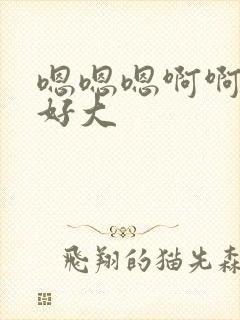 嗯嗯嗯啊啊
好大
飛翔的猫先森